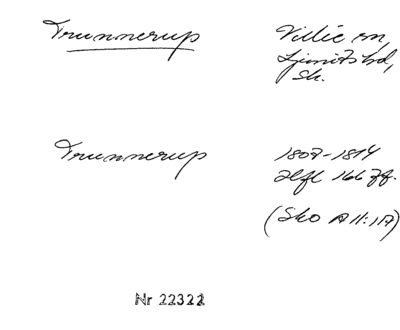 Trunnerup
Villie sn,
Ljunits hd,
Sk.
Trunnerup
1807-1814
Hfl 166 ff.
(Sko A II:1A)
Nr 22322